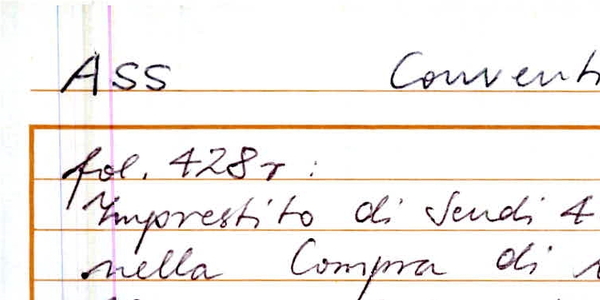 ASS Conventi
fol. 428r:
Imprestito di Scudi 4
nella Compra di